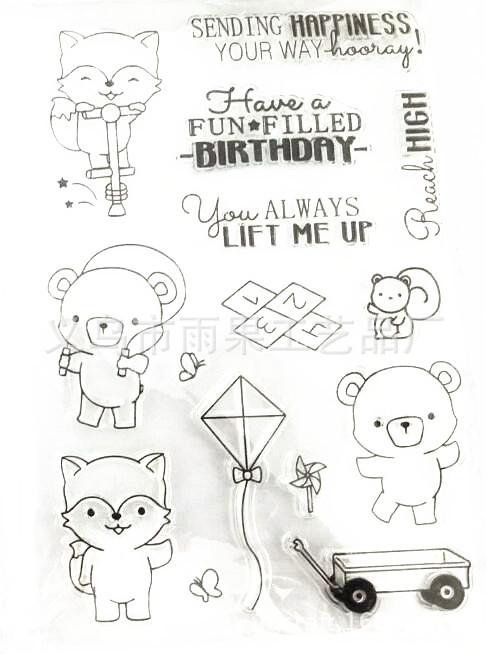 SENDING HAPPINESS
YOUR WAY hooray!
Have a
FUN★FILLED
-BIRTHDAY-
Reach HIGH
You ALWAYS
LIFT ME UP
1 2
3 5
义乌市雨果工艺品厂